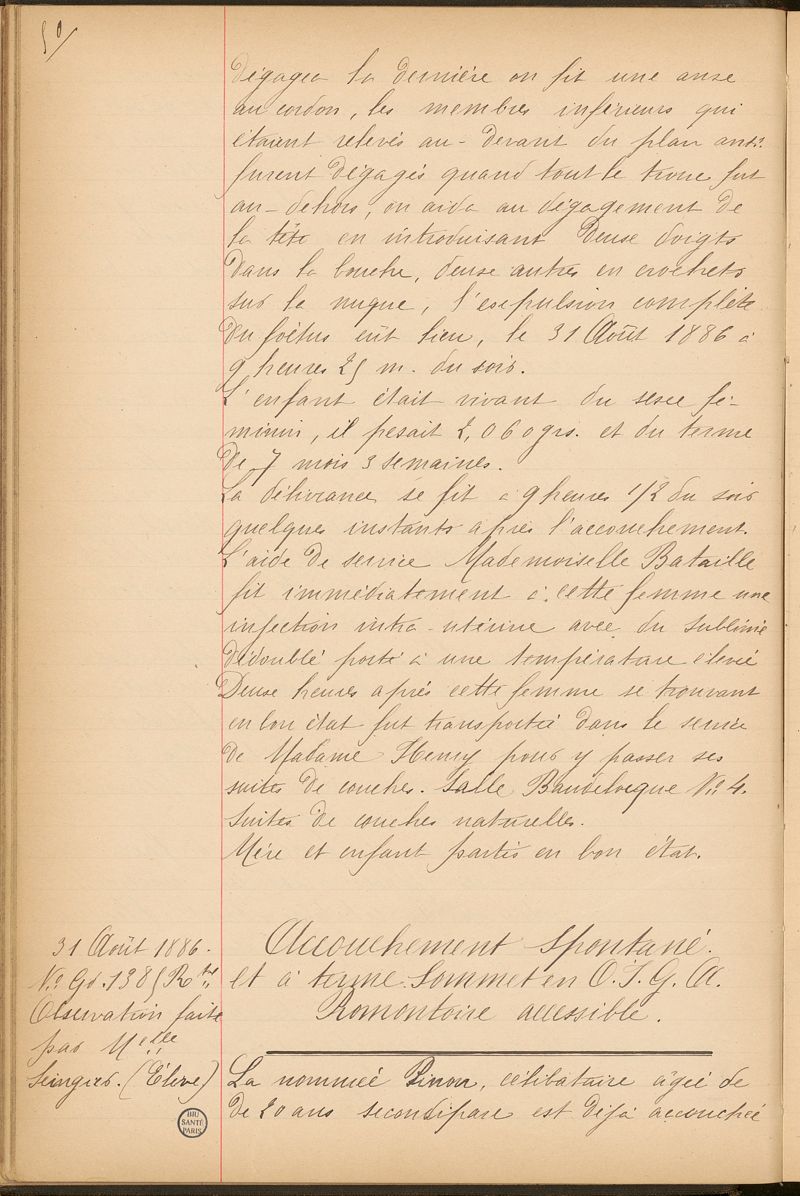 50/
dégagea la dernière on fit une anse
au cordon, les membres inférieurs qui
étaient relevés au-devant du plan antr.
furent dégagés quand tout le tronc fut
au-dehors, on aida au dégagement de
la tête en introduisant deuse doigts
dans la bouche, deuse autres en crochets
sur la nuque, l'esepulsion complète
du foëtus eût lieu, le 31 Août 1886 à
9 heures 25 m. du soir.
L'enfant était vivant du sesee fé-
minin, il pesait 2,060 grs. et du terme
de 7 mois 3 semaines.
La délivrance se fit à 9 heures 1/2 du soir
quelques instants après l'accouchement.
L'aide de service Mademoiselle Bataille
fit immédiatement à cette femme une
injection intra-utérine avec du sublimé
dédoublé porté à une température élevée
Deuse heures après cette femme se trouvant
en bon état fut transportée dans le service
de Madame Henry pour y passer ses
suites de couches. Salle Baudelocque No. 4.
Suites de couches naturelles.
Mère et enfant partis en bon état.
31 Août 1886.
No. Gd. 1385 Rtre
Observation faite
par Melle
(Élève)
Accouchement Spontané.
et à terme. Sommet en O.I.G.A.
Romontoire accessible.
La nommée Pinon, célibataire âgée de
de 20 ans secondipare est déjà accouchée
BIU
SANTÉ
PARIS